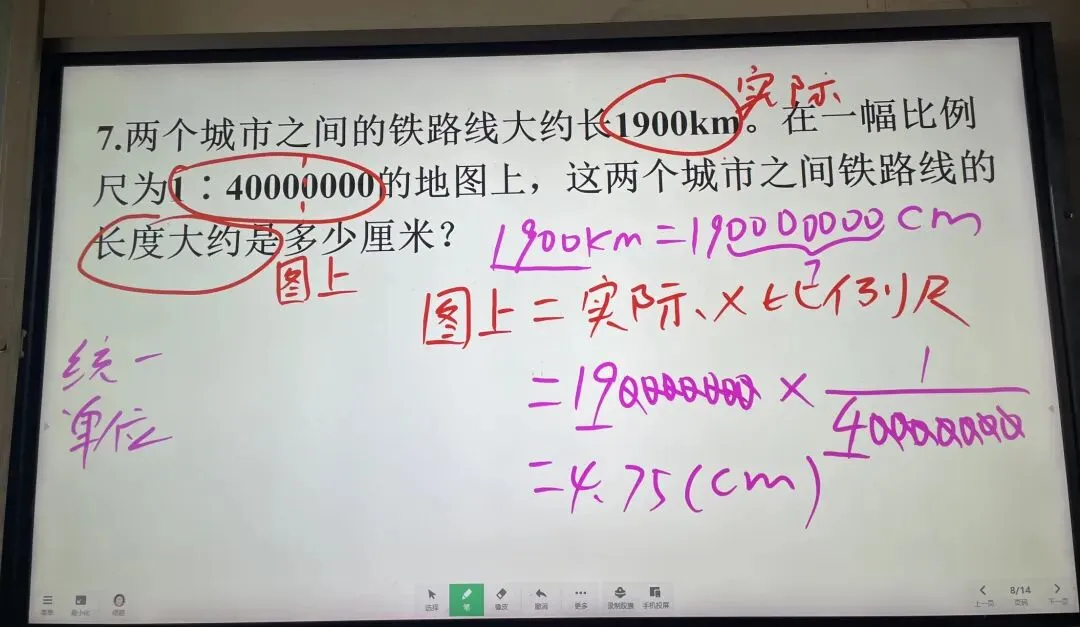 实际
7.两个城市之间的铁路线大约长1900km。在一幅比例
尺为1∶40000000的地图上，这两个城市之间铁路线的
长度大约是多少厘米？
1900km=190000000cm
图上
7
图上=实际×比例尺
统一
单位
=190000000×1/40000000
=4.75(cm)
菜单 最小化
选择 笔 橡皮 撤消 更多 录制胶囊 手机投屏
8/14
上一页 页码 下一页